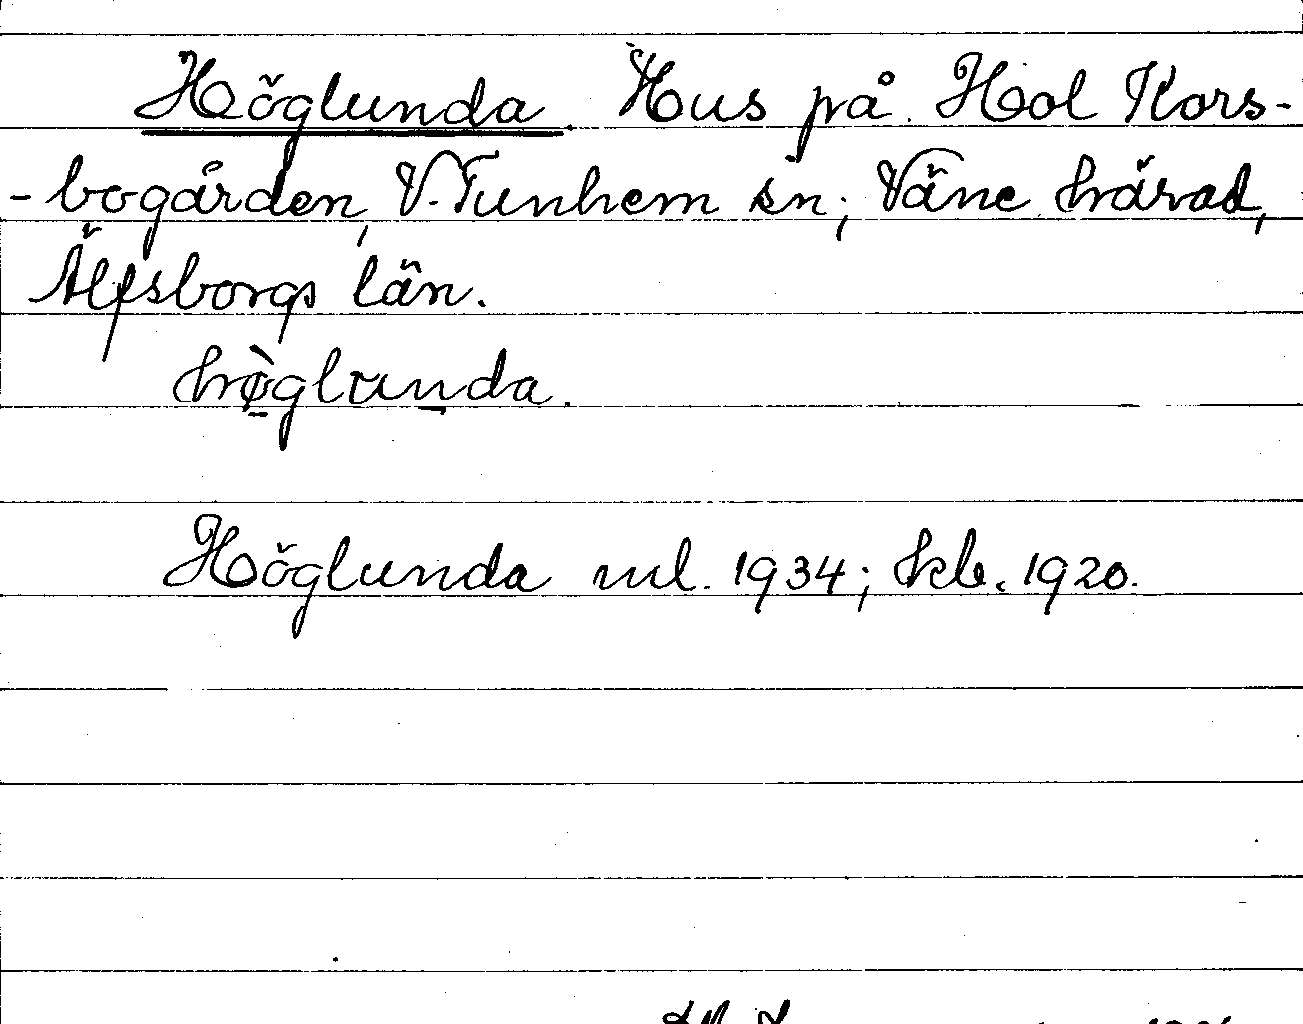 Höglunda. Hus på Hol Kors-
-bogården, V. Tunhem sn, Väne härad,
Älfsborgs län.
hø̀glunda.
Höglunda ml. 1934; kb. 1920.